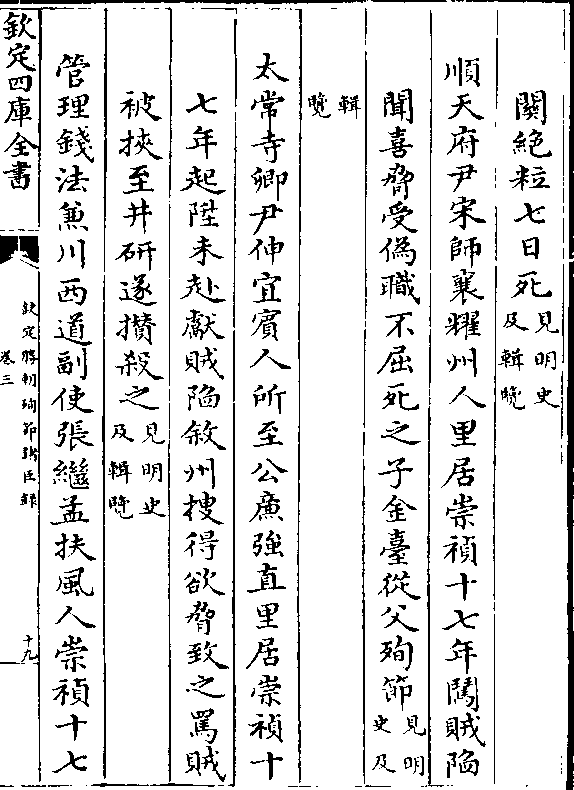 關絶粒七日死見明史及輯覽
順天府尹宋師襄耀州人里居崇禎十七年闖賊陷
聞喜脅受偽職不屈死之子金臺從父殉節見明史及
輯覽
太常寺卿尹伸宜賓人所至公㢘強直里居崇禎十
七年起陞未赴獻賊陷敘州搜得欲脅致之罵賊
被挾至井研遂攅殺之見明史及輯覽
管理錢法兼川西道副使張繼孟扶風人崇禎十七
欽定四庫全書
欽定勝朝殉節諸臣錄
卷三
十九